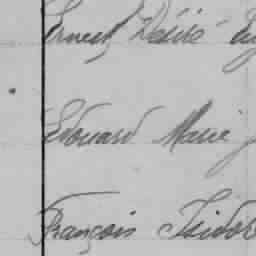 Ernest Désiré
Edouard Marie
François Isidor